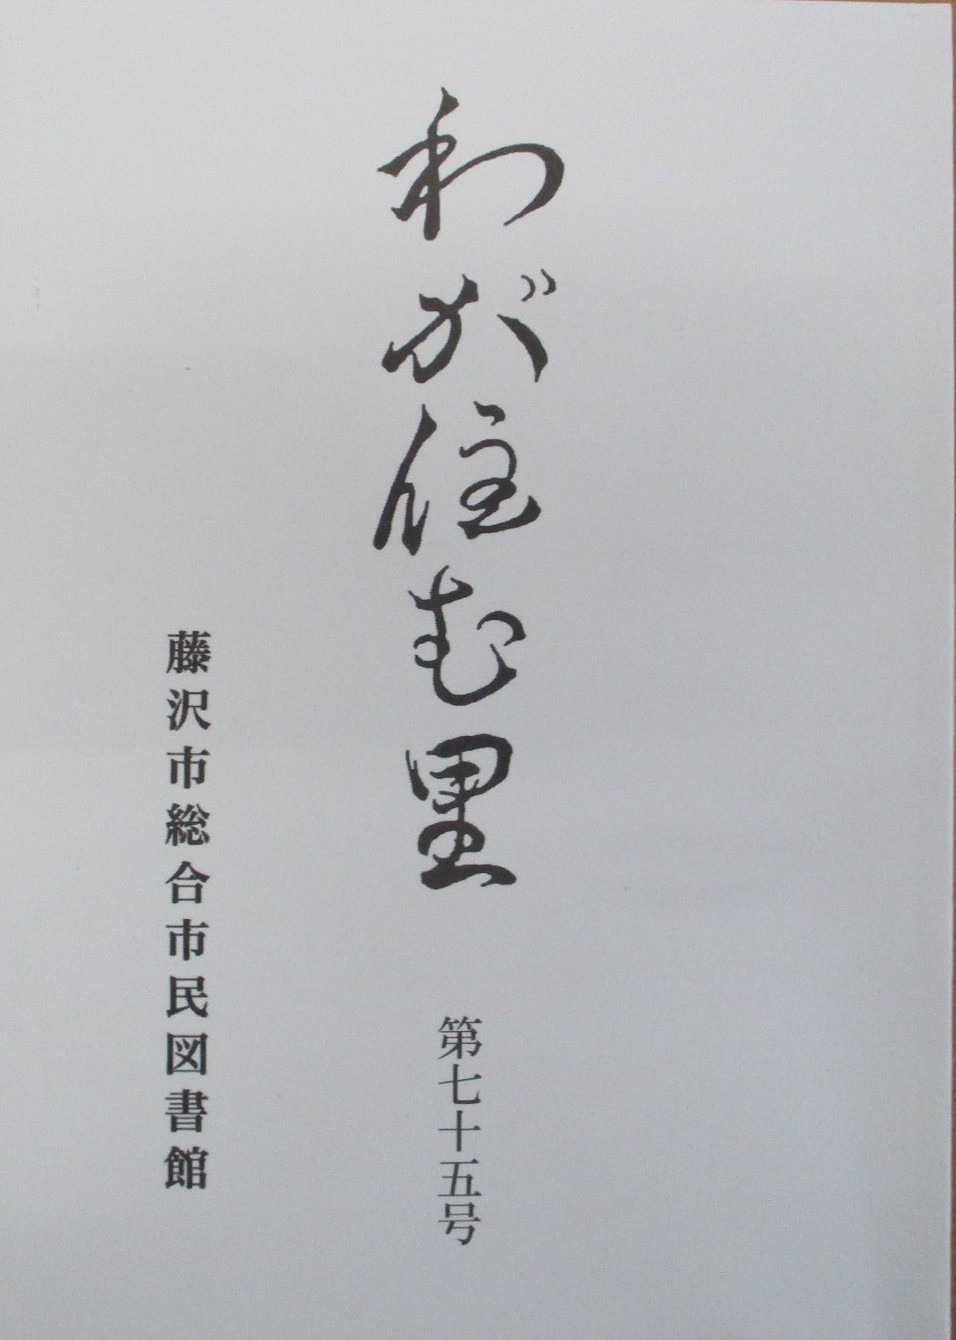 わが住む里
第七十五号
藤沢市総合市民図書館